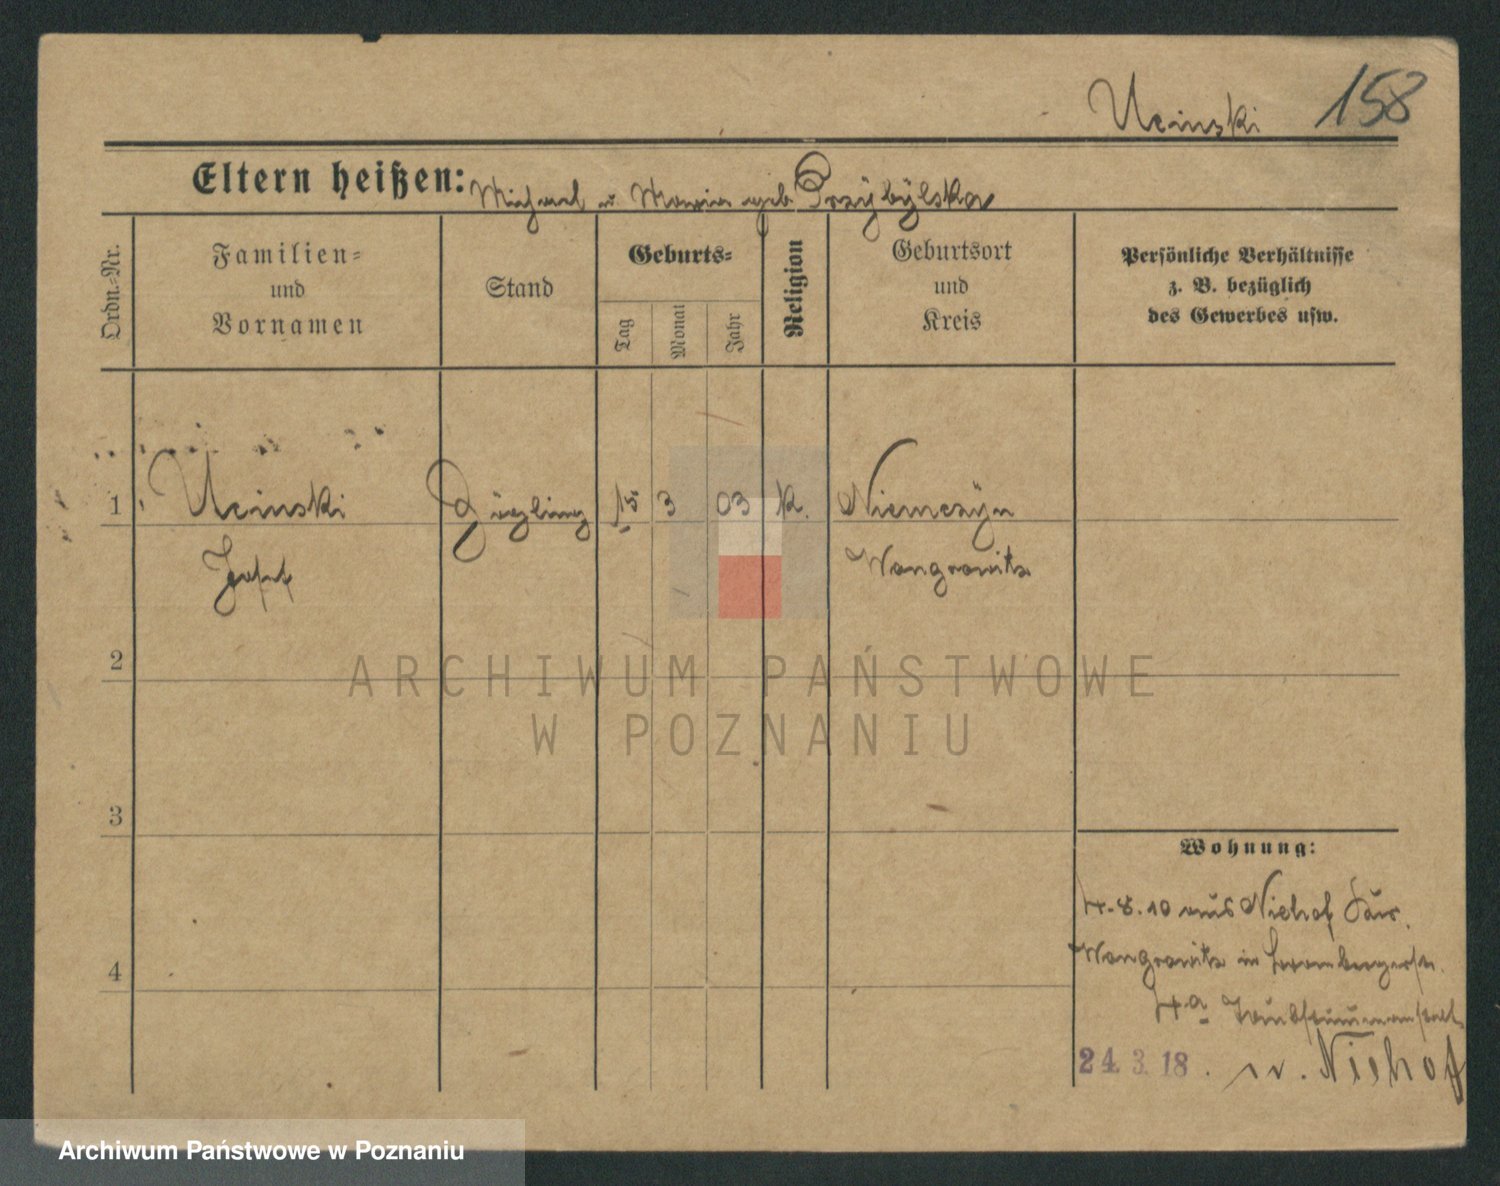 Ucinski 158
Eltern heißen: Michael u Maria geb. Przÿbÿlska
Ordn.-Nr.
Familien-
und
Vornamen
Stand
Geburts-
Tag
Monat
Jahr
Religion
Geburtsort
und
Kreis
Persönliche Verhältnisse
z. B. bezüglich
des Gewerbes usw.
1 Ucinski Zögling 15 3 03 k. Niemczÿn
Josef Wongrowitz
2
3
4
Wohnung:
4.8.10 aus Niehof
Wongrowitz in Brombergerstr.
4a Taubstummenanstalt
24.3.18. n. Niehof
ARCHIWUM PAŃSTWOWE
W POZNANIU
Archiwum Państwowe w Poznaniu